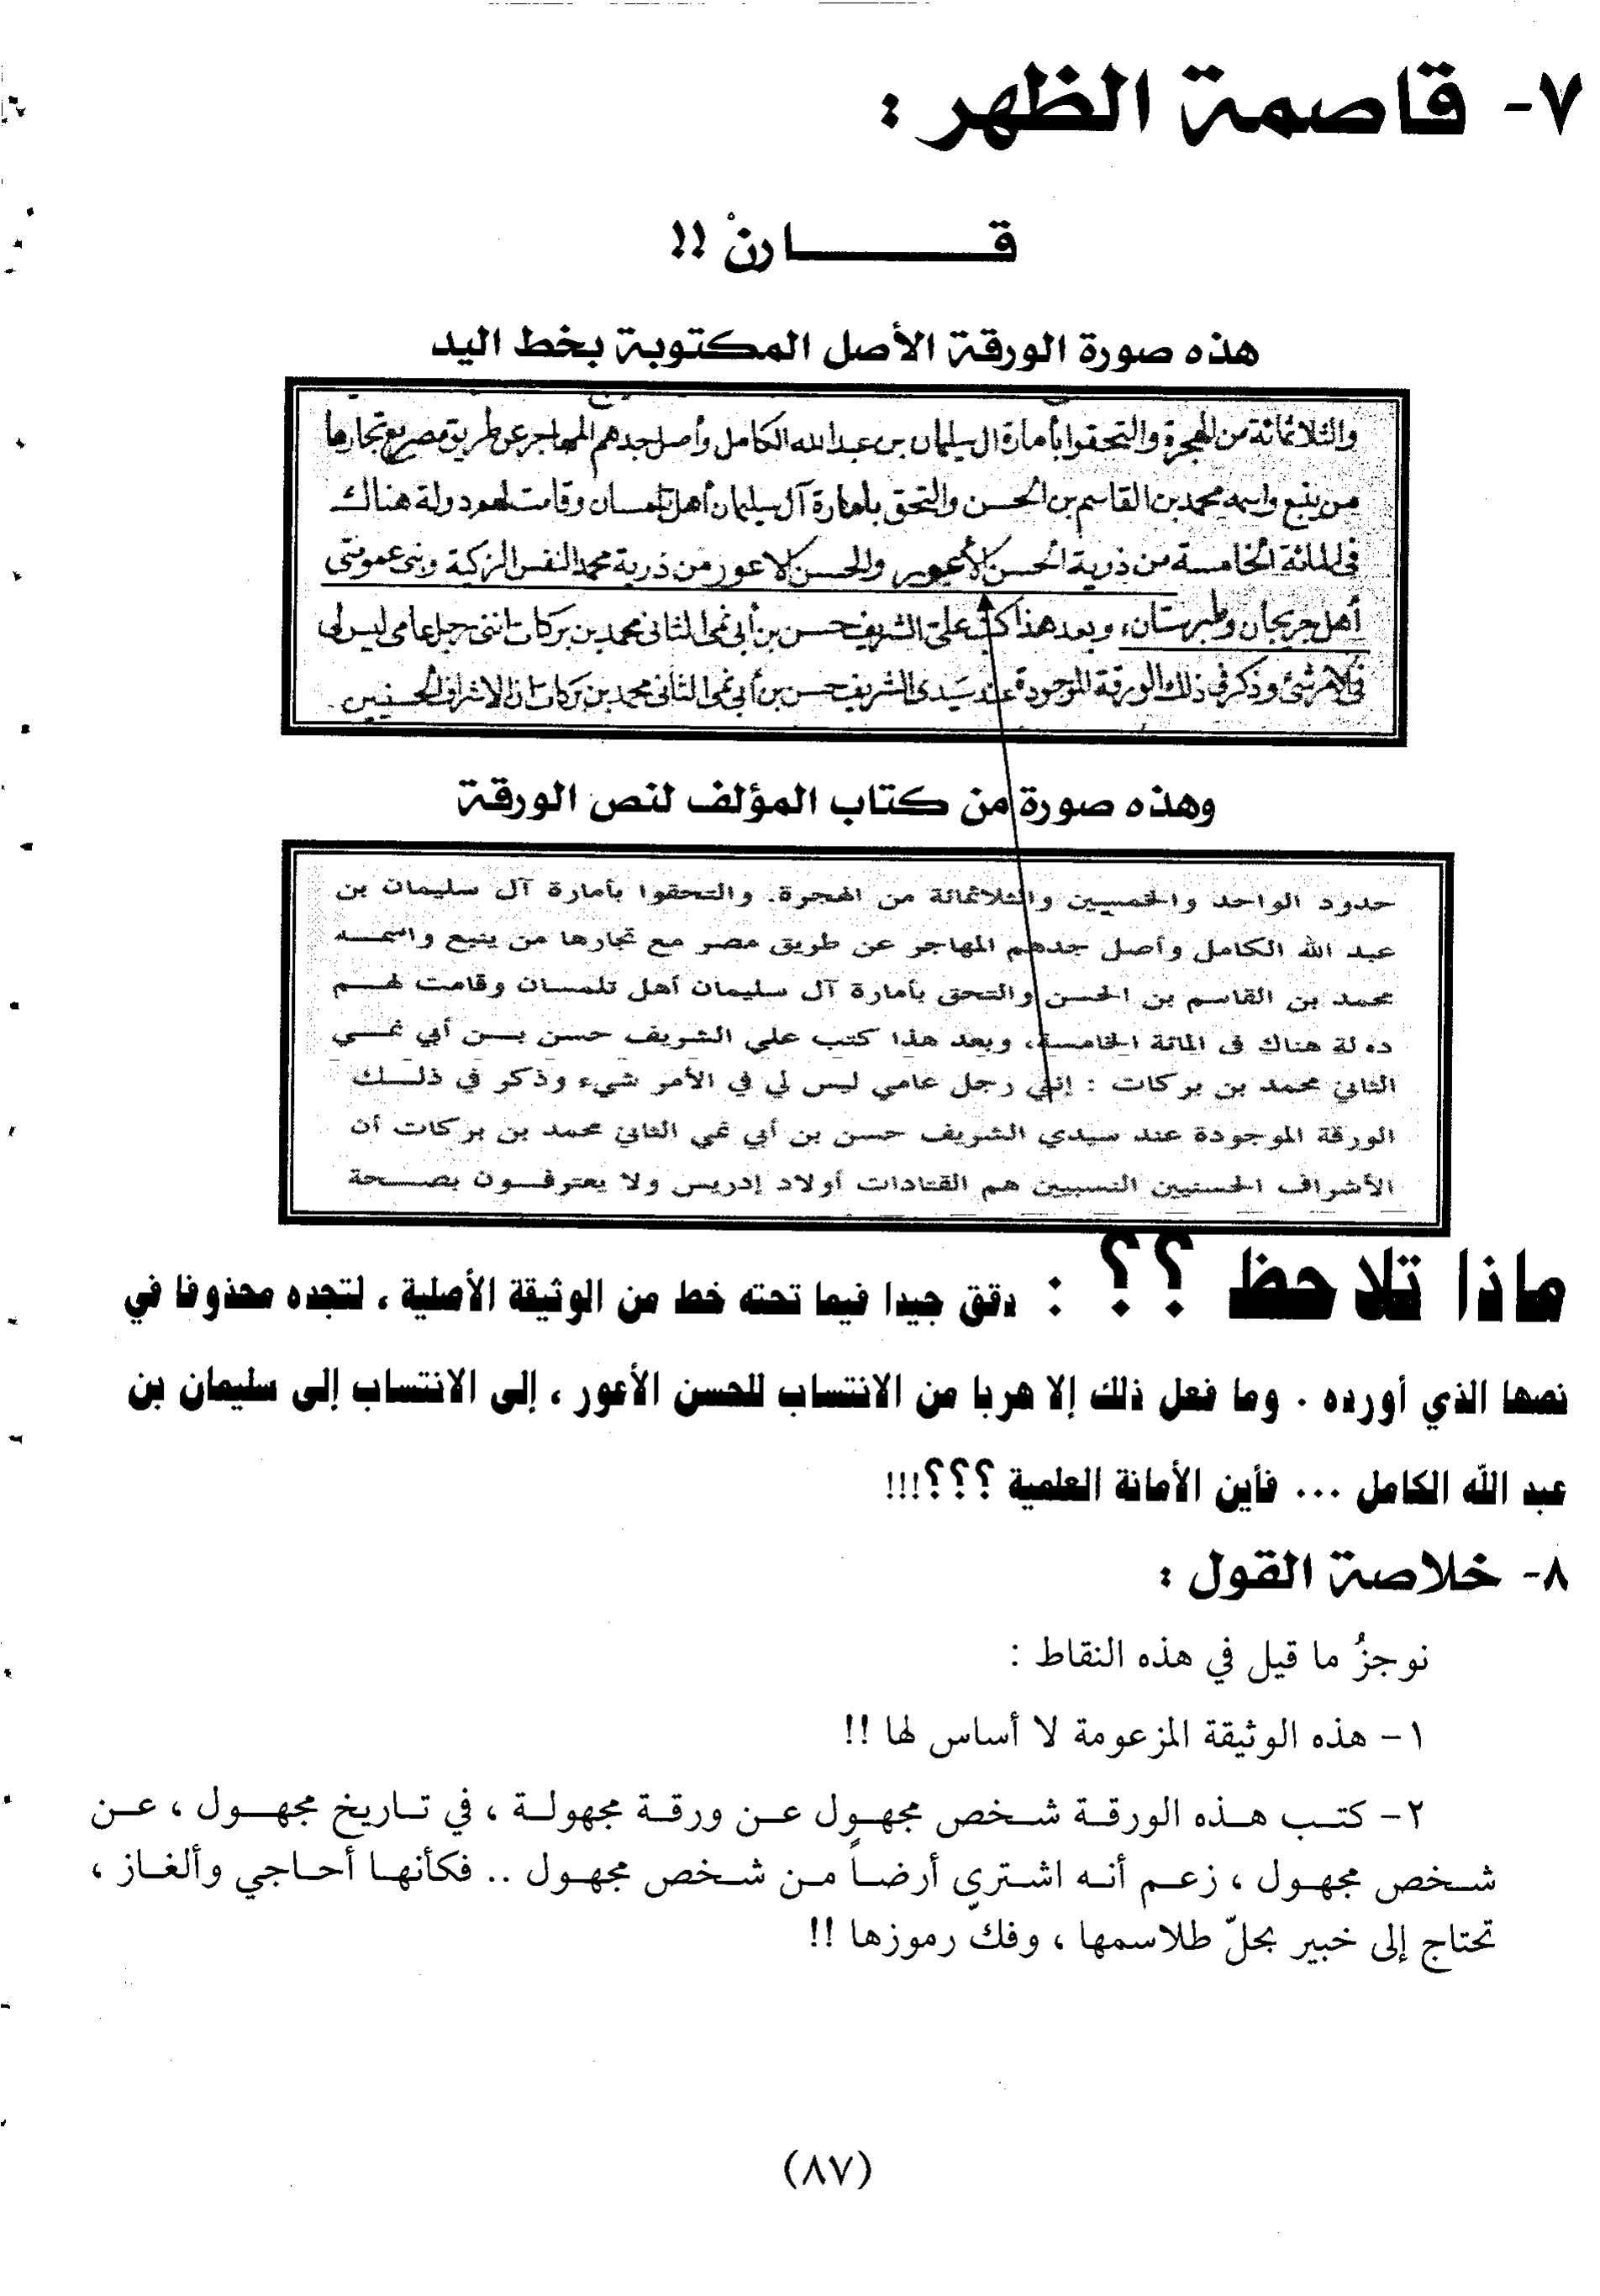 ٧- قاصمة الظهر :
قـــــــارنْ !!
هذه صورة الورقة الأصل المكتوبة بخط اليد
والثلاثمائة من الهجرة والتحقوا بأمارة ال سليمان بن عبد الله الكامل وأصل جدهم المهاجر عن طريق مصر مع تجارها
من ينبع واسمه محمد بن القاسم بن الحسن والتحق بأمارة آل سليمان أهل تلمسان وقامت لهم دولة هناك
في المائة الخامسة من ذرية الحسن الأعور والحسن الاعور من ذرية محمد النفس الزكية وبني عمومتى
أهل جريجان وطبرستان، وبعد هذا كتب على الشريف حسن بن أبي نمي الثاني محمد بن بركات انني رجل عامي ليس لي
في الامر شئ وذكر في ذلك الورقة الموجودة عند سيدي الشريف حسن بن أبي نمي الثاني محمد بن بركات ان الاشراف الحسنيين
وهذه صورة من كتاب المؤلف لنص الورقة
حدود الواحد والخمسين والثلاثمائة من الهجرة. والتحقوا بأمارة آل سليمان بن
عبد الله الكامل وأصل جدهم المهاجر عن طريق مصر مع تجارها من ينبع واسمه
محمد بن القاسم بن الحسن والتحق بأمارة آل سليمان أهل تلمسان وقامت لهم
دولة هناك في المائة الخامسة، وبعد هذا كتب علي الشريف حسن بن أبي نمي
الثاني محمد بن بركات : إنني رجل عامي ليس لي في الأمر شيء وذكر في ذلك
الورقة الموجودة عند سيدي الشريف حسن بن أبي نمي الثاني محمد بن بركات أن
الأشراف الحسنيين النسبيين هم القتادات أولاد إدريس ولا يعترفون بصحة
ماذا تلاحظ ؟؟ : دقق جيدا فيما تحته خط من الوثيقة الأصلية ، لتجده محذوفا في
نصها الذي أورده . وما فعل ذلك إلا هربا من الانتساب للحسن الأعور ، إلى الانتساب إلى سليمان بن
عبد الله الكامل ... فأين الأمانة العلمية ؟؟؟!!!
٨- خلاصة القول :
نوجزُ ما قيل في هذه النقاط :
١- هذه الوثيقة المزعومة لا أساس لها !!
٢- كتب هذه الورقة شخص مجهول عن ورقة مجهولة ، في تاريخ مجهول ، عن
شخص مجهول ، زعم أنه اشترى أرضاً من شخص مجهول .. فكأنها أحاجي وألغاز ،
تحتاج إلى خبير بحلّ طلاسمها ، وفك رموزها !!
(٨٧)